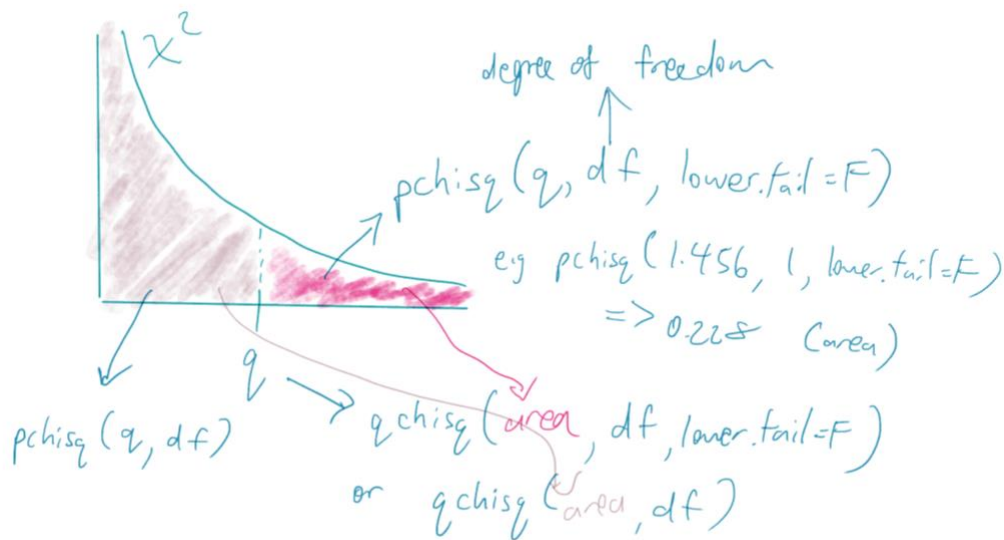 χ²
degree of freedom
pchisq(q, df, lower.tail=F)
eg pchisq(1.456, 1, lower.tail=F)
=> 0.228 (area)
q
pchisq(q, df)
qchisq(area, df, lower.tail=F)
or qchisq(area, df)